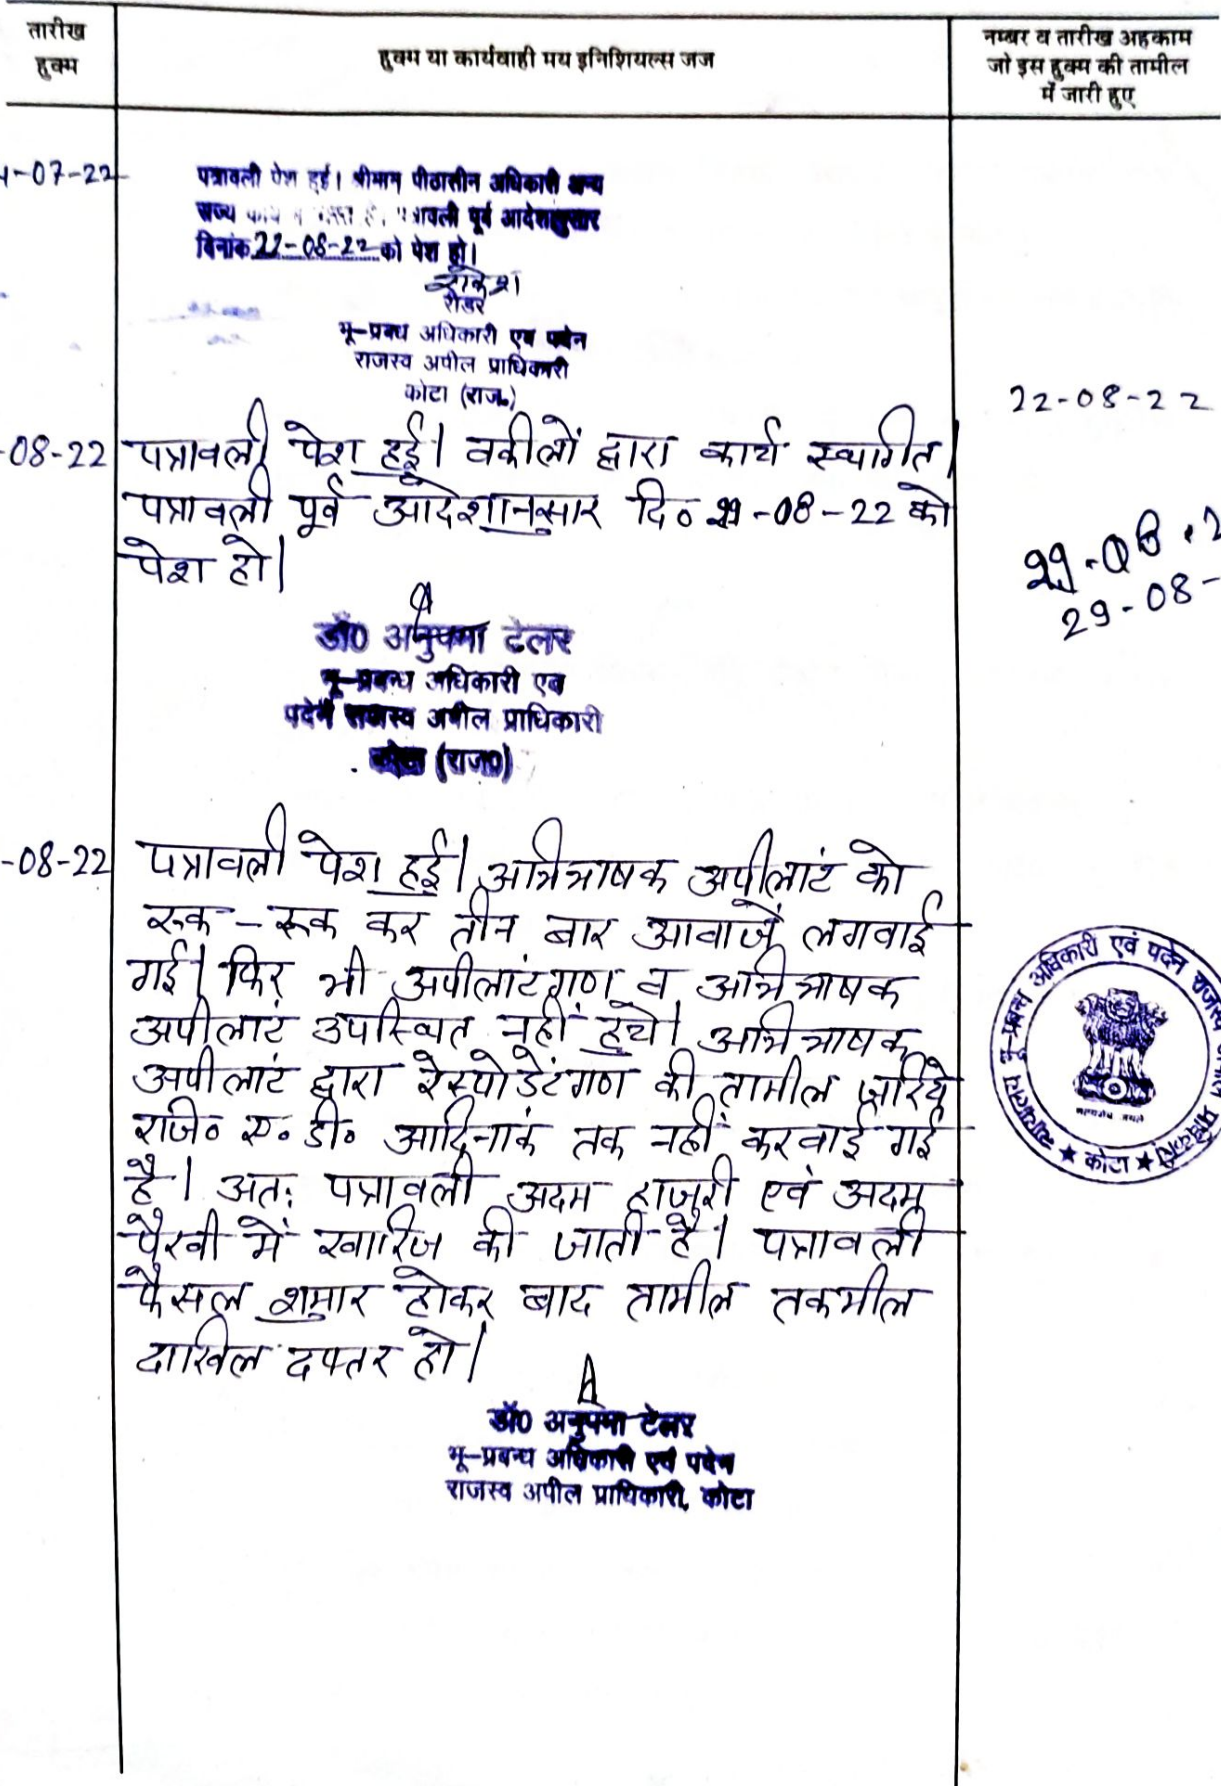 तारीख
हुक्म
हुक्म या कार्यवाही मय इनिशियल्स जज
नम्बर व तारीख अहकाम
जो इस हुक्म की तामील
में जारी हुए
-07-22
पत्रावली पेश हुई। श्रीमान पीठासीन अधिकारी अन्य
राज्य पत्रावली पूर्व आदेशानुसार
दिनांक 22-08-22 को पेश हो।
राकेश
रीडर
भू-प्रबन्ध अधिकारी एवं पदेन
राजस्व अपील प्राधिकारी
कोटा (राज.)
22-08-22
-08-22 पत्रावली पेश हुई। वकीलों द्वारा कार्य स्थगित।
पत्रावली पूर्व आदेशानुसार दि० 29-08-22 को
पेश हो।
29-08-2
29-08-
डॉ0 अनुपमा टेलर
भू-प्रबन्ध अधिकारी एवं
पदेन राजस्व अपील प्राधिकारी
कोटा (राज0)
-08-22 पत्रावली पेश हुई। अभिभाषक अपीलांट को
रुक-रूक कर तीन बार आवाजें लगवाई
गई। फिर भी अपीलांटगण व अभिभाषक
अपीलांट उपस्थित नहीं हुये। अभिभाषक
अपीलांट द्वारा रेस्पोडेंटगण की तामील जरिये
राजि० ए. डी० आदिनांक तक नहीं करवाई गई
है। अतः पत्रावली अदम हाजुरी एवं अदम
पैरवी में खारिज की जाती है। पत्रावली
फैसल शुमार होकर बाद तामील तकमील
दाखिल दफ्तर हो।
डॉ0 अनुपमा टेलर
भू-प्रबन्ध अधिकारी एवं पदेन
राजस्व अपील प्राधिकारी, कोटा
न्यायालय भू-प्रबन्ध अधिकारी एवं पदेन राजस्व अपील प्राधिकारी
★ कोटा ★
सत्यमेव जयते